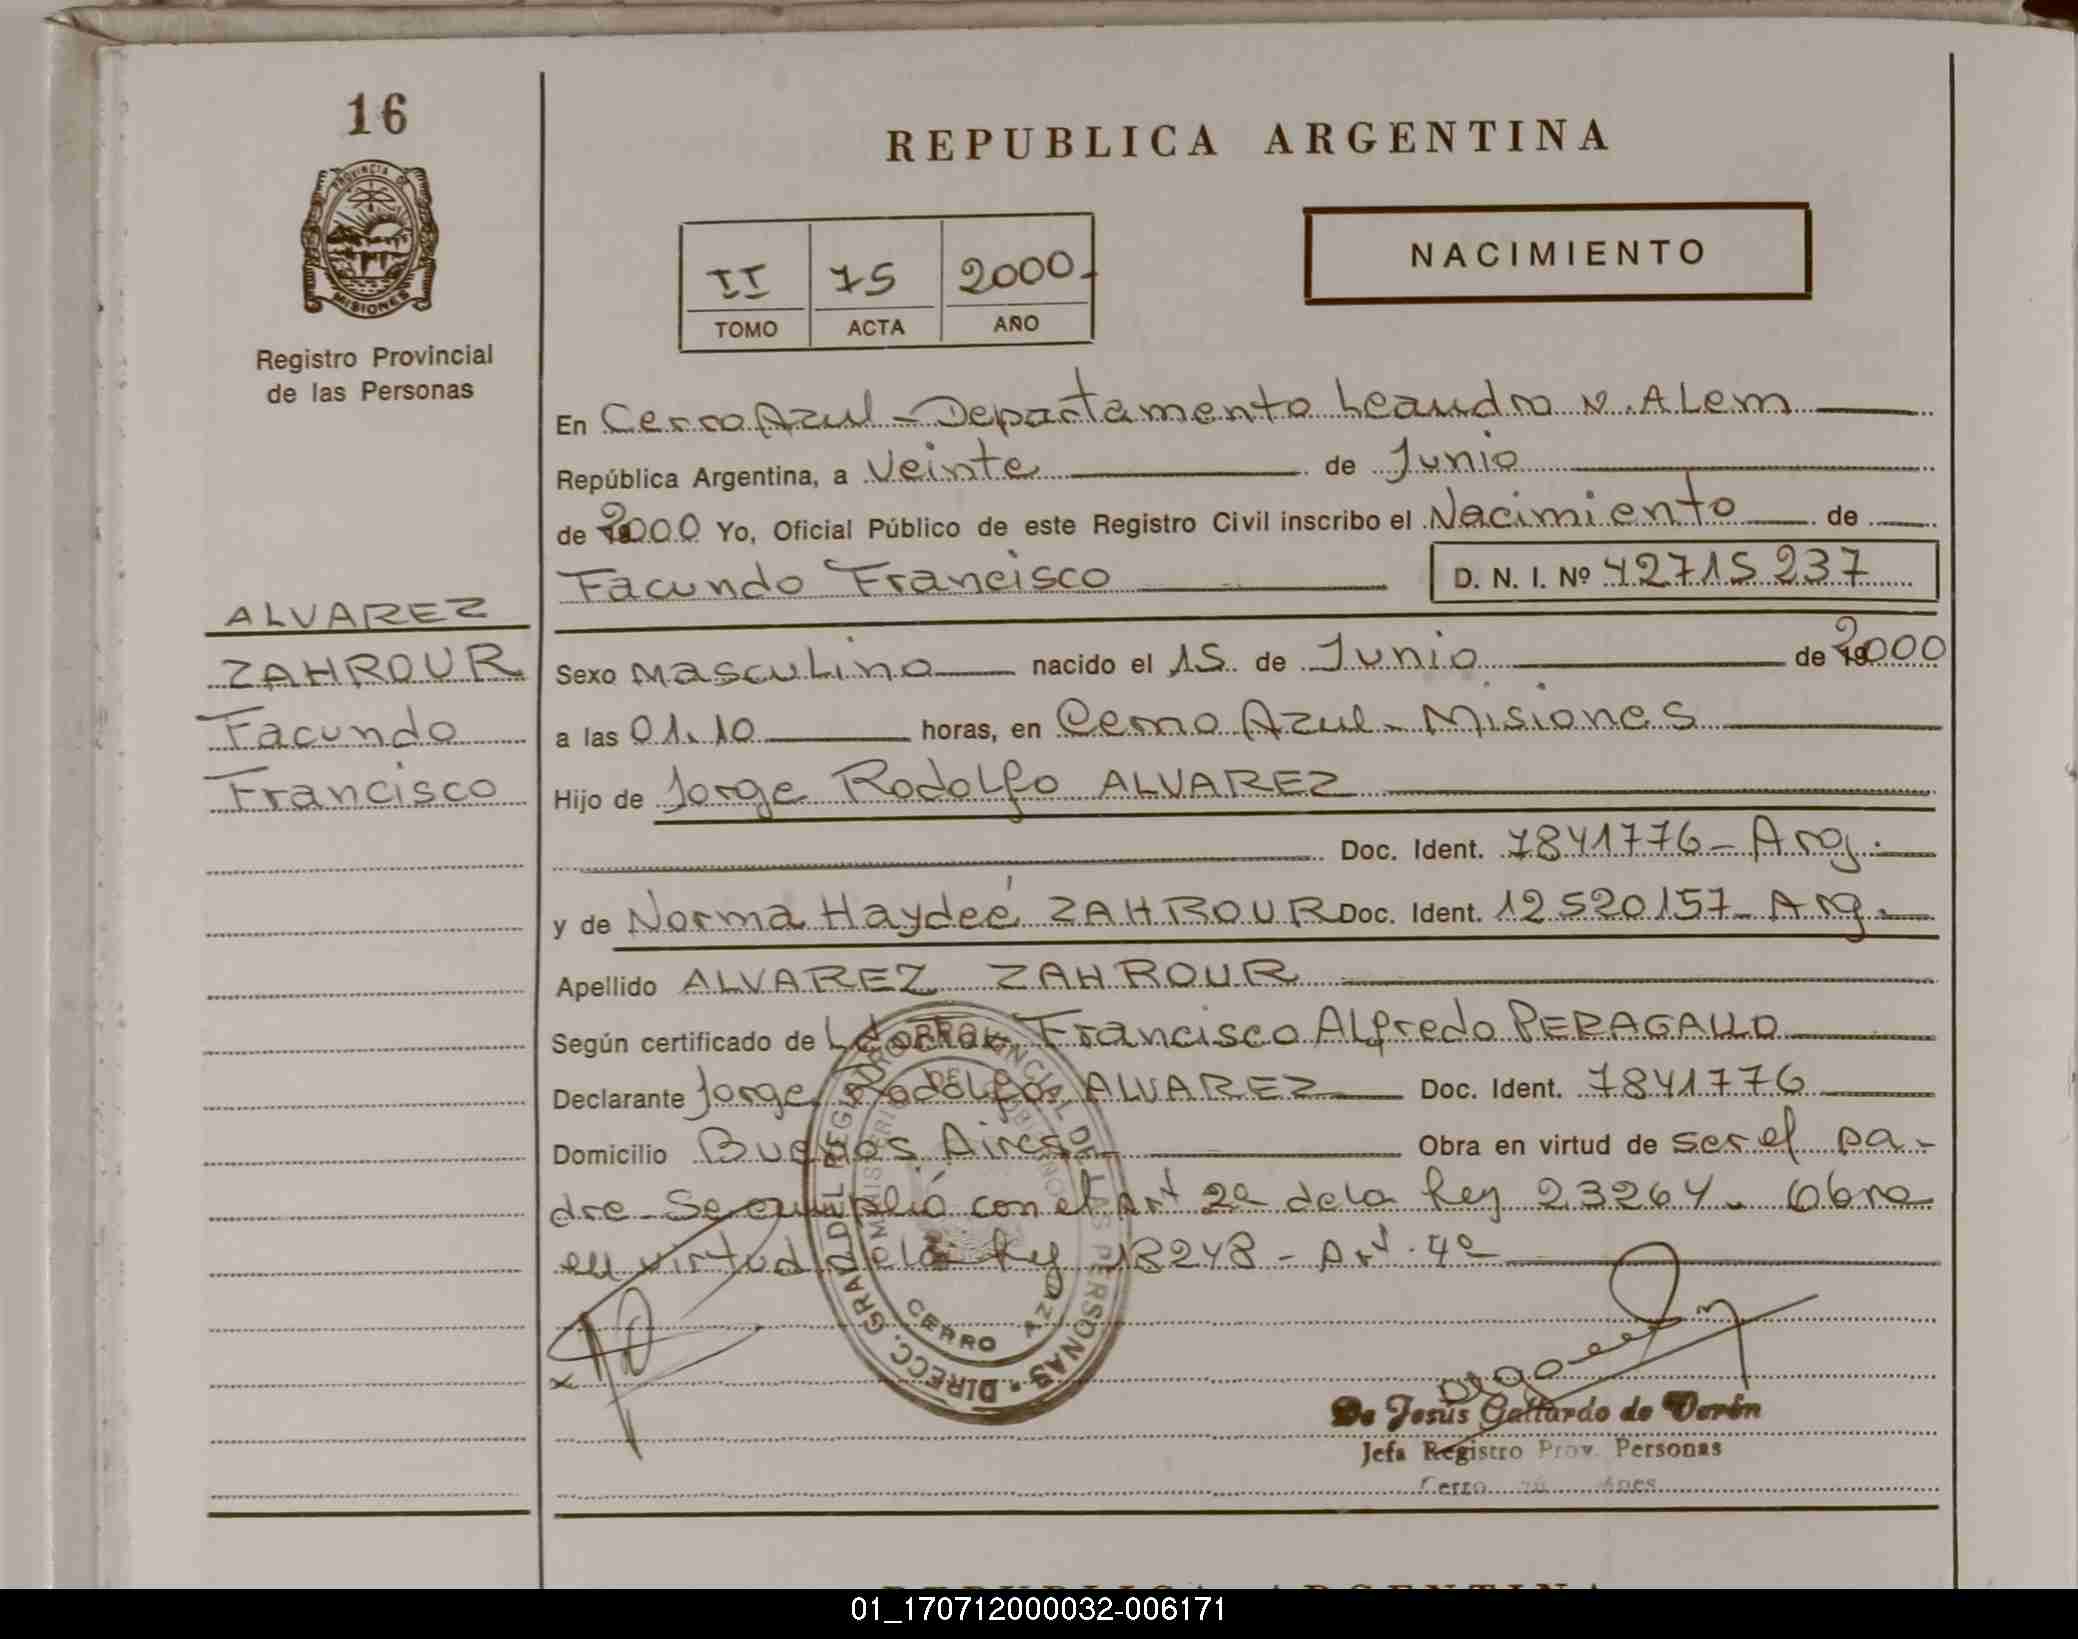 16
REPUBLICA ARGENTINA
PROVINCIA DE
MISIONES
Registro Provincial
de las Personas
NACIMIENTO
II 75 2000
TOMO ACTA AÑO
En Cerro Azul - Departamento Leandro N. Alem
República Argentina, a Veinte de Junio
de 2000 Yo, Oficial Público de este Registro Civil inscribo el Nacimiento de
Facundo Francisco D. N. I. Nº 42715237
ALVAREZ
ZAHROUR
Facundo
Francisco
Sexo masculino nacido el 15 de Junio de 2000
a las 01.10 horas, en Cerro Azul - Misiones
Hijo de Jorge Rodolfo ALVAREZ
Doc. Ident. 7841776 - Arg.
y de Norma Haydeé ZAHROUR Doc. Ident. 12520157 - Arg.
Apellido ALVAREZ ZAHROUR
Según certificado de Francisco Alfredo PERAGALLO
Declarante Jorge Rodolfo ALVAREZ Doc. Ident. 7841776
Domicilio Buenos Aires Obra en virtud de ser el pa-
dre - Se cumplió con el Art 2º de la Ley 23264 - Obra
en virtud de la Ley 18248 - Art. 4º
DIRECC. GRAL. DEL REGISTRO PROVINCIAL DE LAS PERSONAS
MINISTERIO DE GOBIERNO
CERRO AZUL
De Jesús Gallardo de Verón
Jefa Registro Prov. Personas
Cerro
REPUBLICA ARGENTINA
01_170712000032-006171